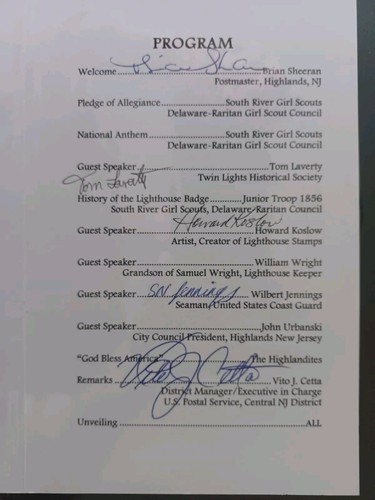 PROGRAM
Brian Sheeran
Welcome..............................Brian Sheeran
Postmaster, Highlands, NJ
Pledge of Allegiance..................South River Girl Scouts
Delaware-Raritan Girl Scout Council
National Anthem.....................South River Girl Scouts
Delaware-Raritan Girl Scout Council
Guest Speaker..................................Tom Laverty
Tom Laverty
Twin Lights Historical Society
History of the Lighthouse Badge........Junior Troop 1856
South River Girl Scouts, Delaware/Raritan Council
Howard Koslow
Guest Speaker..............................Howard Koslow
Artist, Creator of Lighthouse Stamps
Guest Speaker..............................William Wright
Grandson of Samuel Wright, Lighthouse Keeper
Guest Speaker...SN Jennings...Wilbert Jennings
Seaman/United States Coast Guard
Guest Speaker................................John Urbanski
City Council President, Highlands New Jersey
"God Bless America"........................The Highlandites
Vito J Cetta
Remarks........................................Vito J. Cetta
District Manager/Executive in Charge
U.S. Postal Service, Central NJ District
Unveiling..................................................ALL